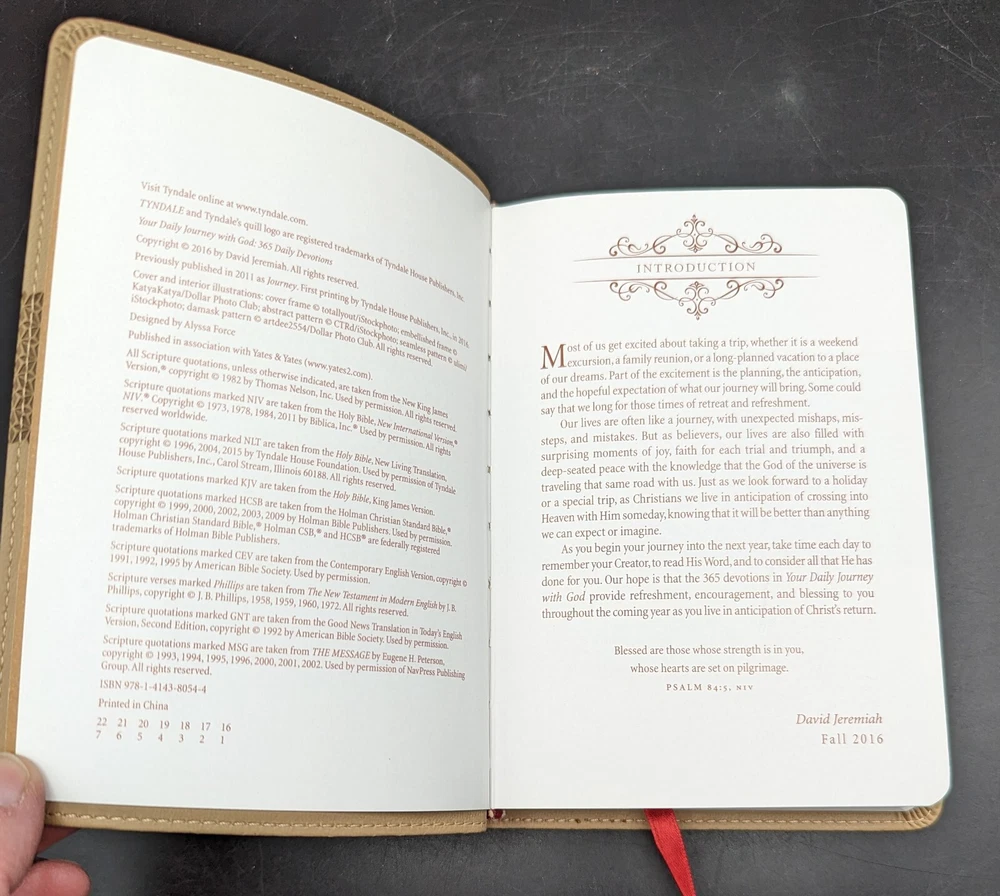 Visit Tyndale online at www.tyndale.com.
TYNDALE and Tyndale's quill logo are registered trademarks of Tyndale House Publishers, Inc.
Your Daily Journey with God: 365 Daily Devotions
Copyright © 2016 by David Jeremiah. All rights reserved.
Previously published in 2011 as Journey. First printing by Tyndale House Publishers, Inc., in 2016.
Cover and interior illustrations: cover frame © totallyout/iStockphoto; embellished frame ©
KatyaKatya/Dollar Photo Club; abstract pattern © CTRd/iStockphoto; seamless pattern ©
iStockphoto; damask pattern © artdee2554/Dollar Photo Club. All rights reserved.
Designed by Alyssa Force
Published in association with Yates & Yates (www.yates2.com).
All Scripture quotations, unless otherwise indicated, are taken from the New King James
Version,® copyright © 1982 by Thomas Nelson, Inc. Used by permission. All rights reserved.
Scripture quotations marked NIV are taken from the Holy Bible, New International Version,®
NIV.® Copyright © 1973, 1978, 1984, 2011 by Biblica, Inc.® Used by permission. All rights
reserved worldwide.
Scripture quotations marked NLT are taken from the Holy Bible, New Living Translation,
copyright © 1996, 2004, 2015 by Tyndale House Foundation. Used by permission of Tyndale
House Publishers, Inc., Carol Stream, Illinois 60188. All rights reserved.
Scripture quotations marked KJV are taken from the Holy Bible, King James Version.
Scripture quotations marked HCSB are taken from the Holman Christian Standard Bible,®
copyright © 1999, 2000, 2002, 2003, 2009 by Holman Bible Publishers. Used by permission.
Holman Christian Standard Bible,® Holman CSB,® and HCSB® are federally registered
trademarks of Holman Bible Publishers.
Scripture quotations marked CEV are taken from the Contemporary English Version, copyright ©
1991, 1992, 1995 by American Bible Society. Used by permission.
Scripture verses marked Phillips are taken from The New Testament in Modern English by J. B.
Phillips, copyright © J. B. Phillips, 1958, 1959, 1960, 1972. All rights reserved.
Scripture quotations marked GNT are taken from the Good News Translation in Today's English
Version, Second Edition, copyright © 1992 by American Bible Society. Used by permission.
Scripture quotations marked MSG are taken from THE MESSAGE by Eugene H. Peterson,
copyright © 1993, 1994, 1995, 1996, 2000, 2001, 2002. Used by permission of NavPress Publishing
Group. All rights reserved.
ISBN 978-1-4143-8054-4
Printed in China
22 21 20 19 18 17 16
7 6 5 4 3 2 1
INTRODUCTION
Most of us get excited about taking a trip, whether it is a weekend
excursion, a family reunion, or a long-planned vacation to a place
of our dreams. Part of the excitement is the planning, the anticipation,
and the hopeful expectation of what our journey will bring. Some could
say that we long for those times of retreat and refreshment.
Our lives are often like a journey, with unexpected mishaps, mis-
steps, and mistakes. But as believers, our lives are also filled with
surprising moments of joy, faith for each trial and triumph, and a
deep-seated peace with the knowledge that the God of the universe is
traveling that same road with us. Just as we look forward to a holiday
or a special trip, as Christians we live in anticipation of crossing into
Heaven with Him someday, knowing that it will be better than anything
we can expect or imagine.
As you begin your journey into the next year, take time each day to
remember your Creator, to read His Word, and to consider all that He has
done for you. Our hope is that the 365 devotions in Your Daily Journey
with God provide refreshment, encouragement, and blessing to you
throughout the coming year as you live in anticipation of Christ's return.
Blessed are those whose strength is in you,
whose hearts are set on pilgrimage.
PSALM 84:5, NIV
David Jeremiah
Fall 2016